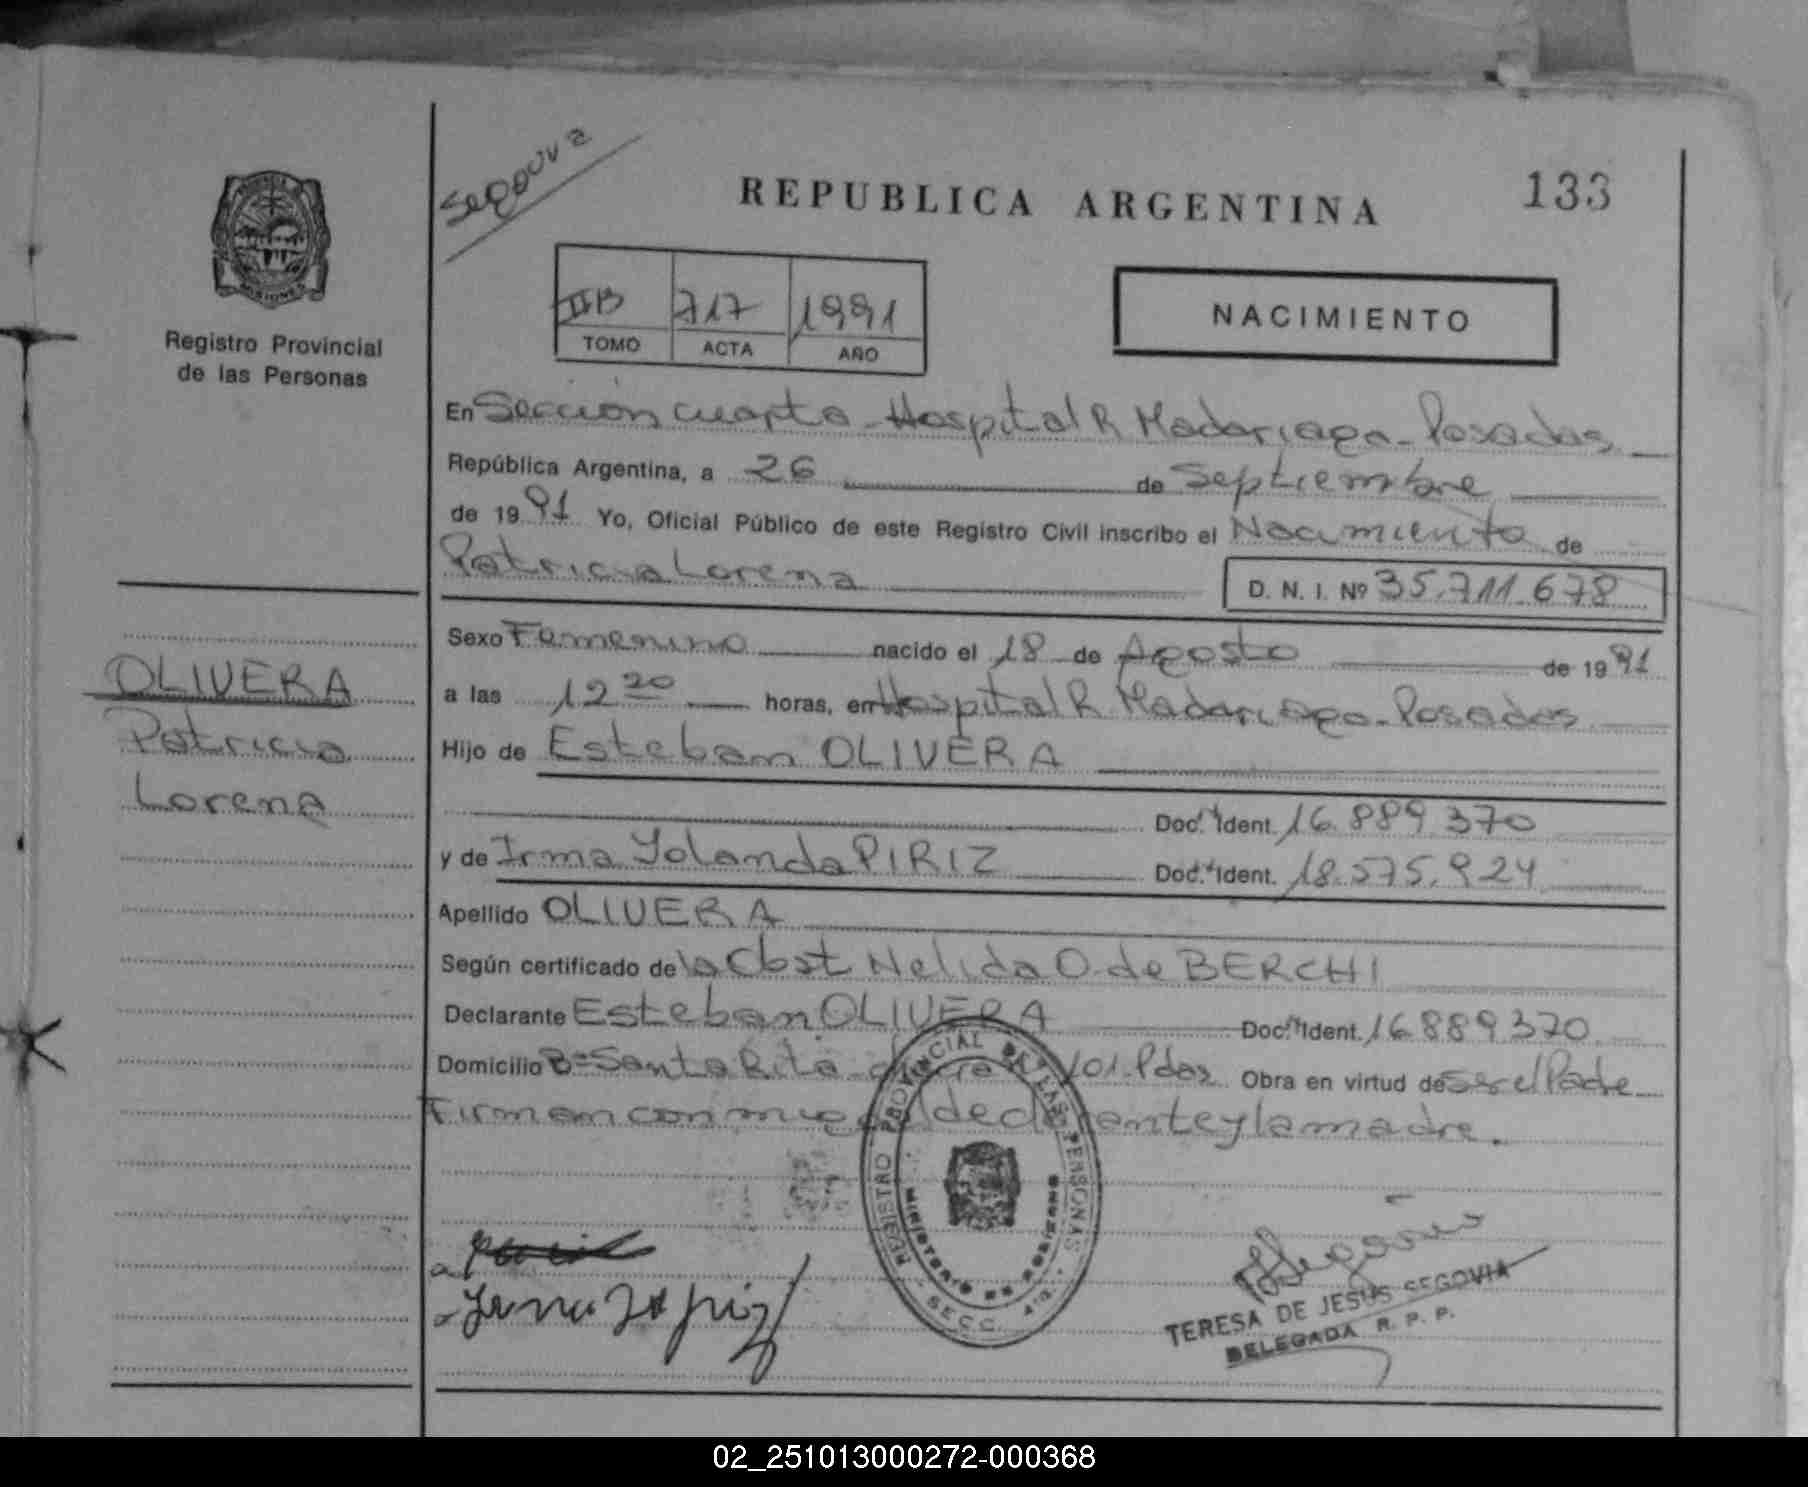 Segovia
REPUBLICA ARGENTINA
133
MISIONES
Registro Provincial
de las Personas
IIB 717 1991
TOMO ACTA AÑO
NACIMIENTO
En Sección cuarta - Hospital R Madariaga - Posadas
República Argentina, a 26 de Septiembre
de 1991 Yo, Oficial Público de este Registro Civil inscribo el Nacimiento de
Patricia Lorena
D. N. I. Nº 35.711.678
Sexo Femenino nacido el 18 de Agosto de 1991
a las 12 20 horas, en Hospital R Madariaga - Posadas
Hijo de Esteban OLIVERA
Doc. Ident. 16.889.370
y de Irma Yolanda PIRIZ Doc. Ident. 18.575.924
Apellido OLIVERA
Según certificado de la Obst Nelida O. de BERCHI
Declarante Esteban OLIVERA Doc. Ident. 16889370
Domicilio Bº Santa Rita - 101. Pdas Obra en virtud de ser el Padre
Firman conmigo el declarante y la madre.
OLIVERA
Patricia
Lorena
REGISTRO PROVINCIAL DE LAS PERSONAS
MINISTERIO DE GOBIERNO
SECC. 4ta.
Segovia
TERESA DE JESUS SEGOVIA
DELEGADA R. P. P.
02_251013000272-000368